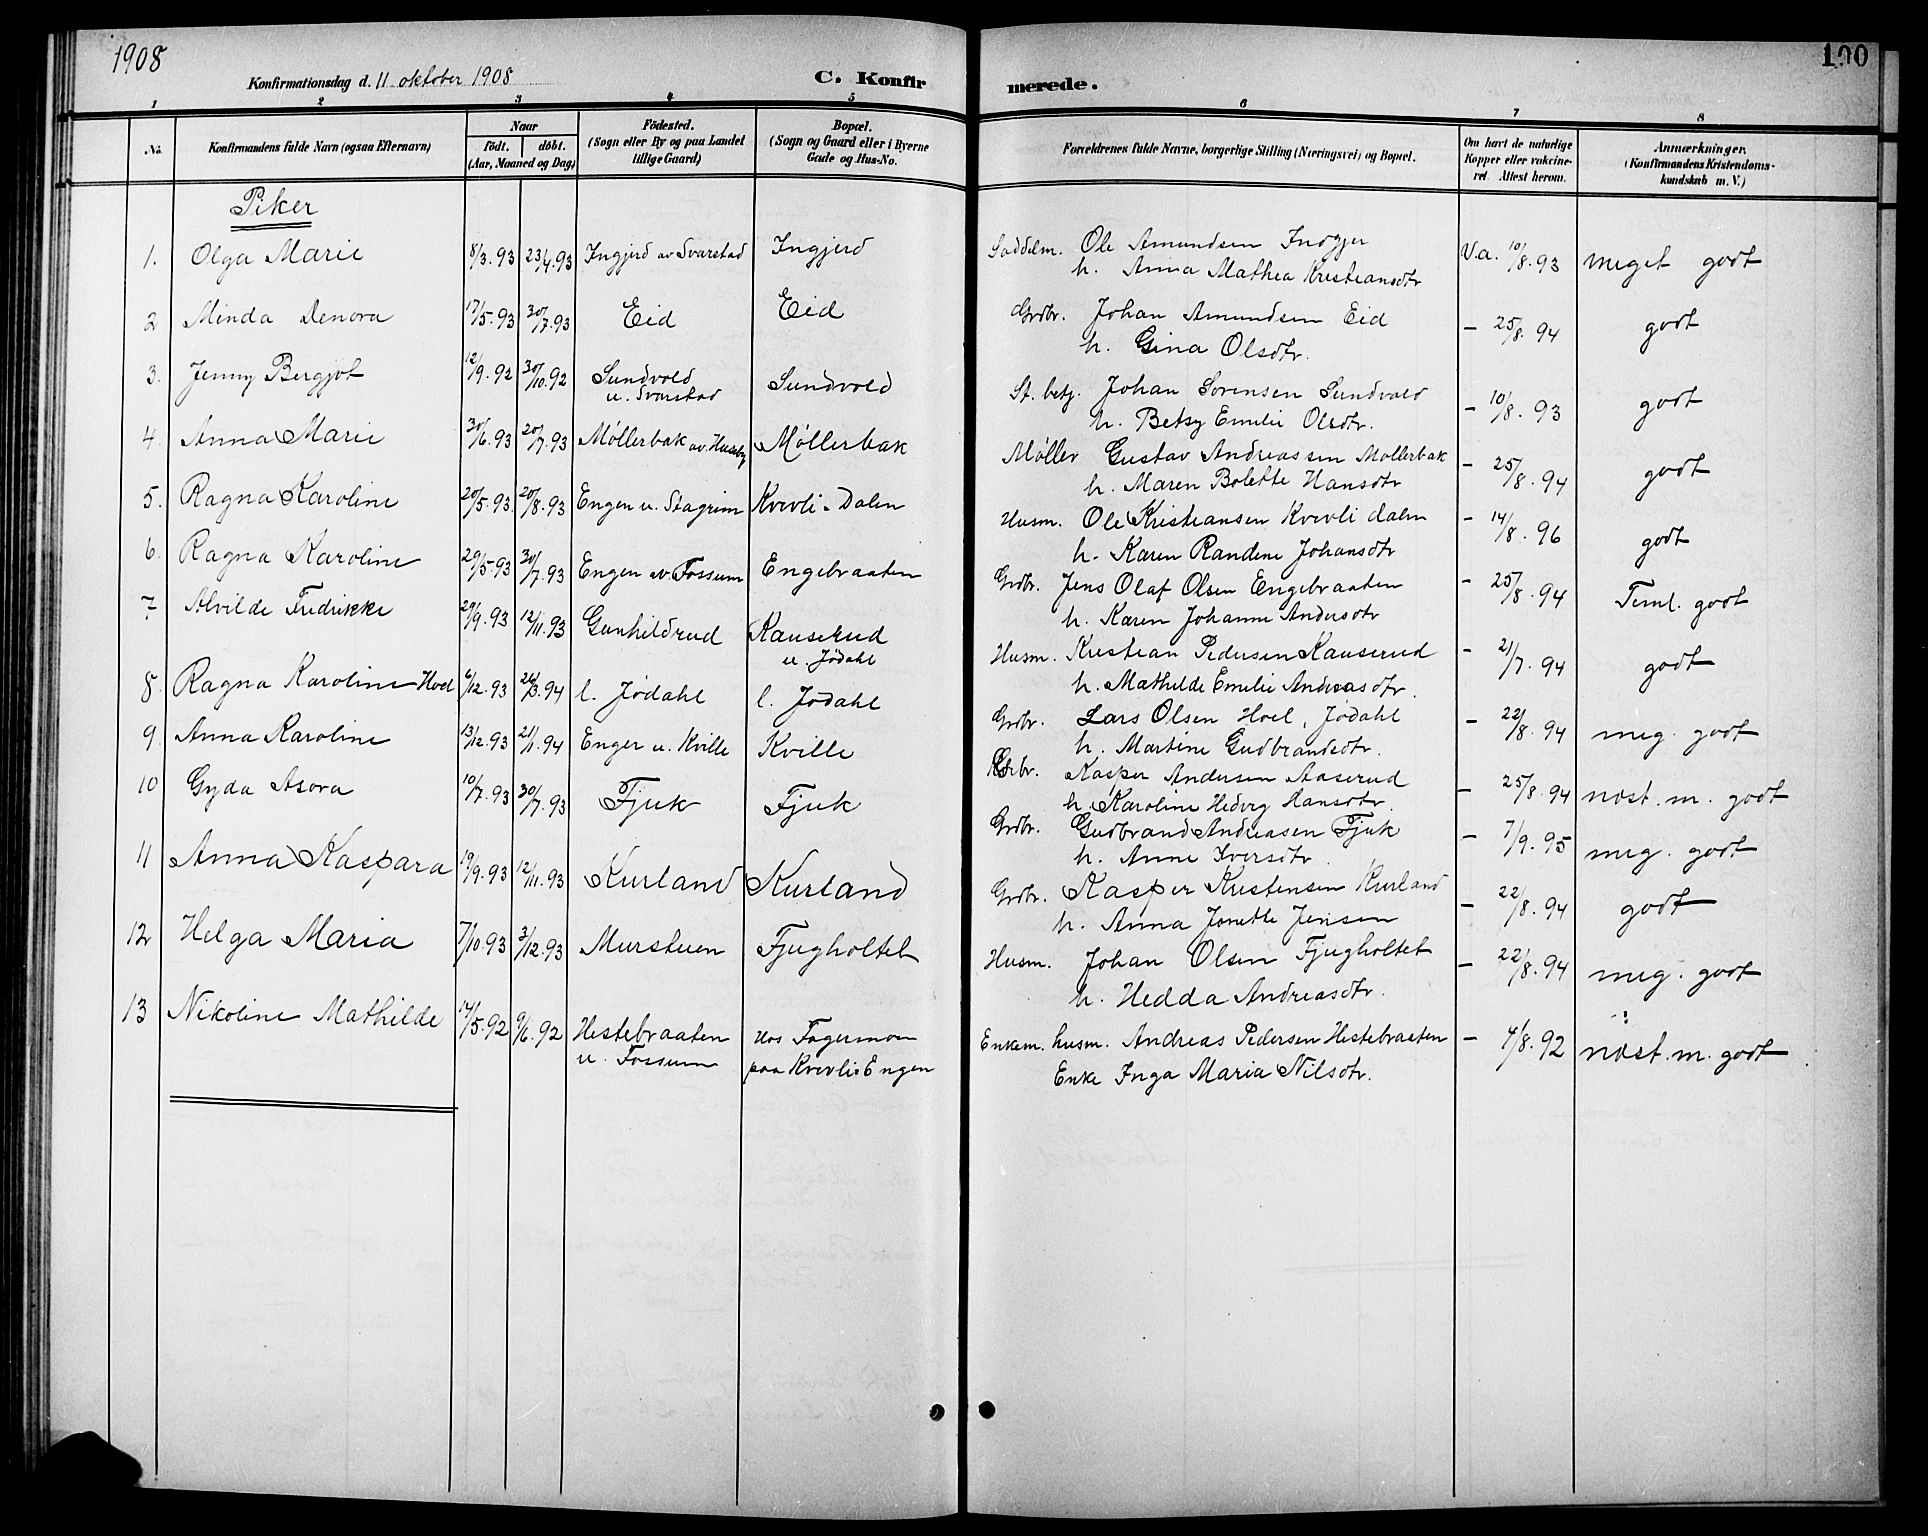 1908
100
Konfirmationsdag d. 11 oktober 1908
C. Konfir
merede.
1 2 3 4 5 6 7 8
No. Konfirmandens fulde Navn (ogsaa Efternavn)
Naar
født. døbt.
(Aar, Maaned og Dag)
Fødested.
(Sogn eller By og paa Landet
tillige Gaard)
Bopæl.
(Sogn og Gaard eller i Byerne
Gade og Hus-No.
Forældrenes fulde Navne, borgerlige Stilling (Næringsvei) og Bopæl.
Om havt de naturlige
Kopper eller vakcine-
ret Attest herom.
Anmærkninger.
(Konfirmandens Kristendoms-
kundskab m. V.)
Piker
1. Olga Marie 8/3.93 23/4.93 Ingjerd av Svarstad Ingjerd Saddelm. Ole Amundsen V.a. 10/8.93 meget godt
h. Anna Mathea Kristiansdtr
2 Minda Denora 17/5.93 30/7.93 Eid Eid Grdbr. Johan Amundsen Eid – 25/8.94 godt
h. Gina Olsdtr.
3. Jenny Bergjot 12/9.92 30/10.92 Sundvold Sundvold St. betj. Johan Sørensen Sundvold – 10/8.93 godt
u. Svarstad
h. Betsy Emilie Olsdtr.
4. Anna Marie 30/6.93 20/7.93 Møllerbak av Huseby Møllerbak Møller Gustav Andreassen Møllerbak – 25/8.94 godt
h. Maren Bolette Hansdtr
5. Ragna Karoline 20/5.93. 20/8.93 Engen u. Stagrim Kvevli-Dalen Husm. Ole Kristiansen Kvevli dalen – 14/8.96 godt
h. Karen Randene Johansdtr
6. Ragna Karoline 29/5.93 30/7.93 Engen av. Fossum Engebraaten Grdbr. Jens Olaf Olsen Engebraaten – 25/8.94 Teml. godt
h. Karen Johanne Andersdtr
7 Alvilde Fredrikke 29/9.93 12/11.93 Gunhildrud Kauserud Husm. Kristian Pedersen Kauserud – 21/7.94 godt
u. Jødahl
h. Mathilde Emilie Andreasdtr.
8. Ragna Karoline Hoel 6/12.93 26/3.94 l. Jødahl l. Jødahl Grdbr. Lars Olsen Hoel, Jødahl – 22/8.94 meg. godt
h. Martine Gudbrandsdtr.
9. Anna Karoline 13/12.93 21/1.94 Enger u. Kville Kville Kasper Andersen Aaserud – 25/8.94 nost. m. godt
h. Karoline Hedvig Hansdtr.
10 Gyda Asora 10/7.93 30/7.93 Fjuk Fjuk Grdbr. Gudbrand Andreasen Fjuk – 7/9.95 meg. godt
h. Anne Iversdtr.
11 Anna Kaspara 19/9.93 12/11.93 Kurland Kurland Grdbr. Kasper Kristensen Kurland – 22/8.94 godt
h. Anna Jonette Jensen
12 Helga Maria 7/10.93 3/12.93 Murstuen Fjugholtet Husm. Johan Olsen Fjugholtet – 22/8.94 meg. godt
h. Hedda Andreasdtr.
13 Nikoline Mathilde 14/5.92 9/6.92 Hestebraaten Hos Fagermoen Enkem. husm. Andreas Pedersen Hestebraaten – 4/8.92 nost. m. godt
u. Fossum paa Kvevli-Engen
Enke Inga Maria Nilsdtr.